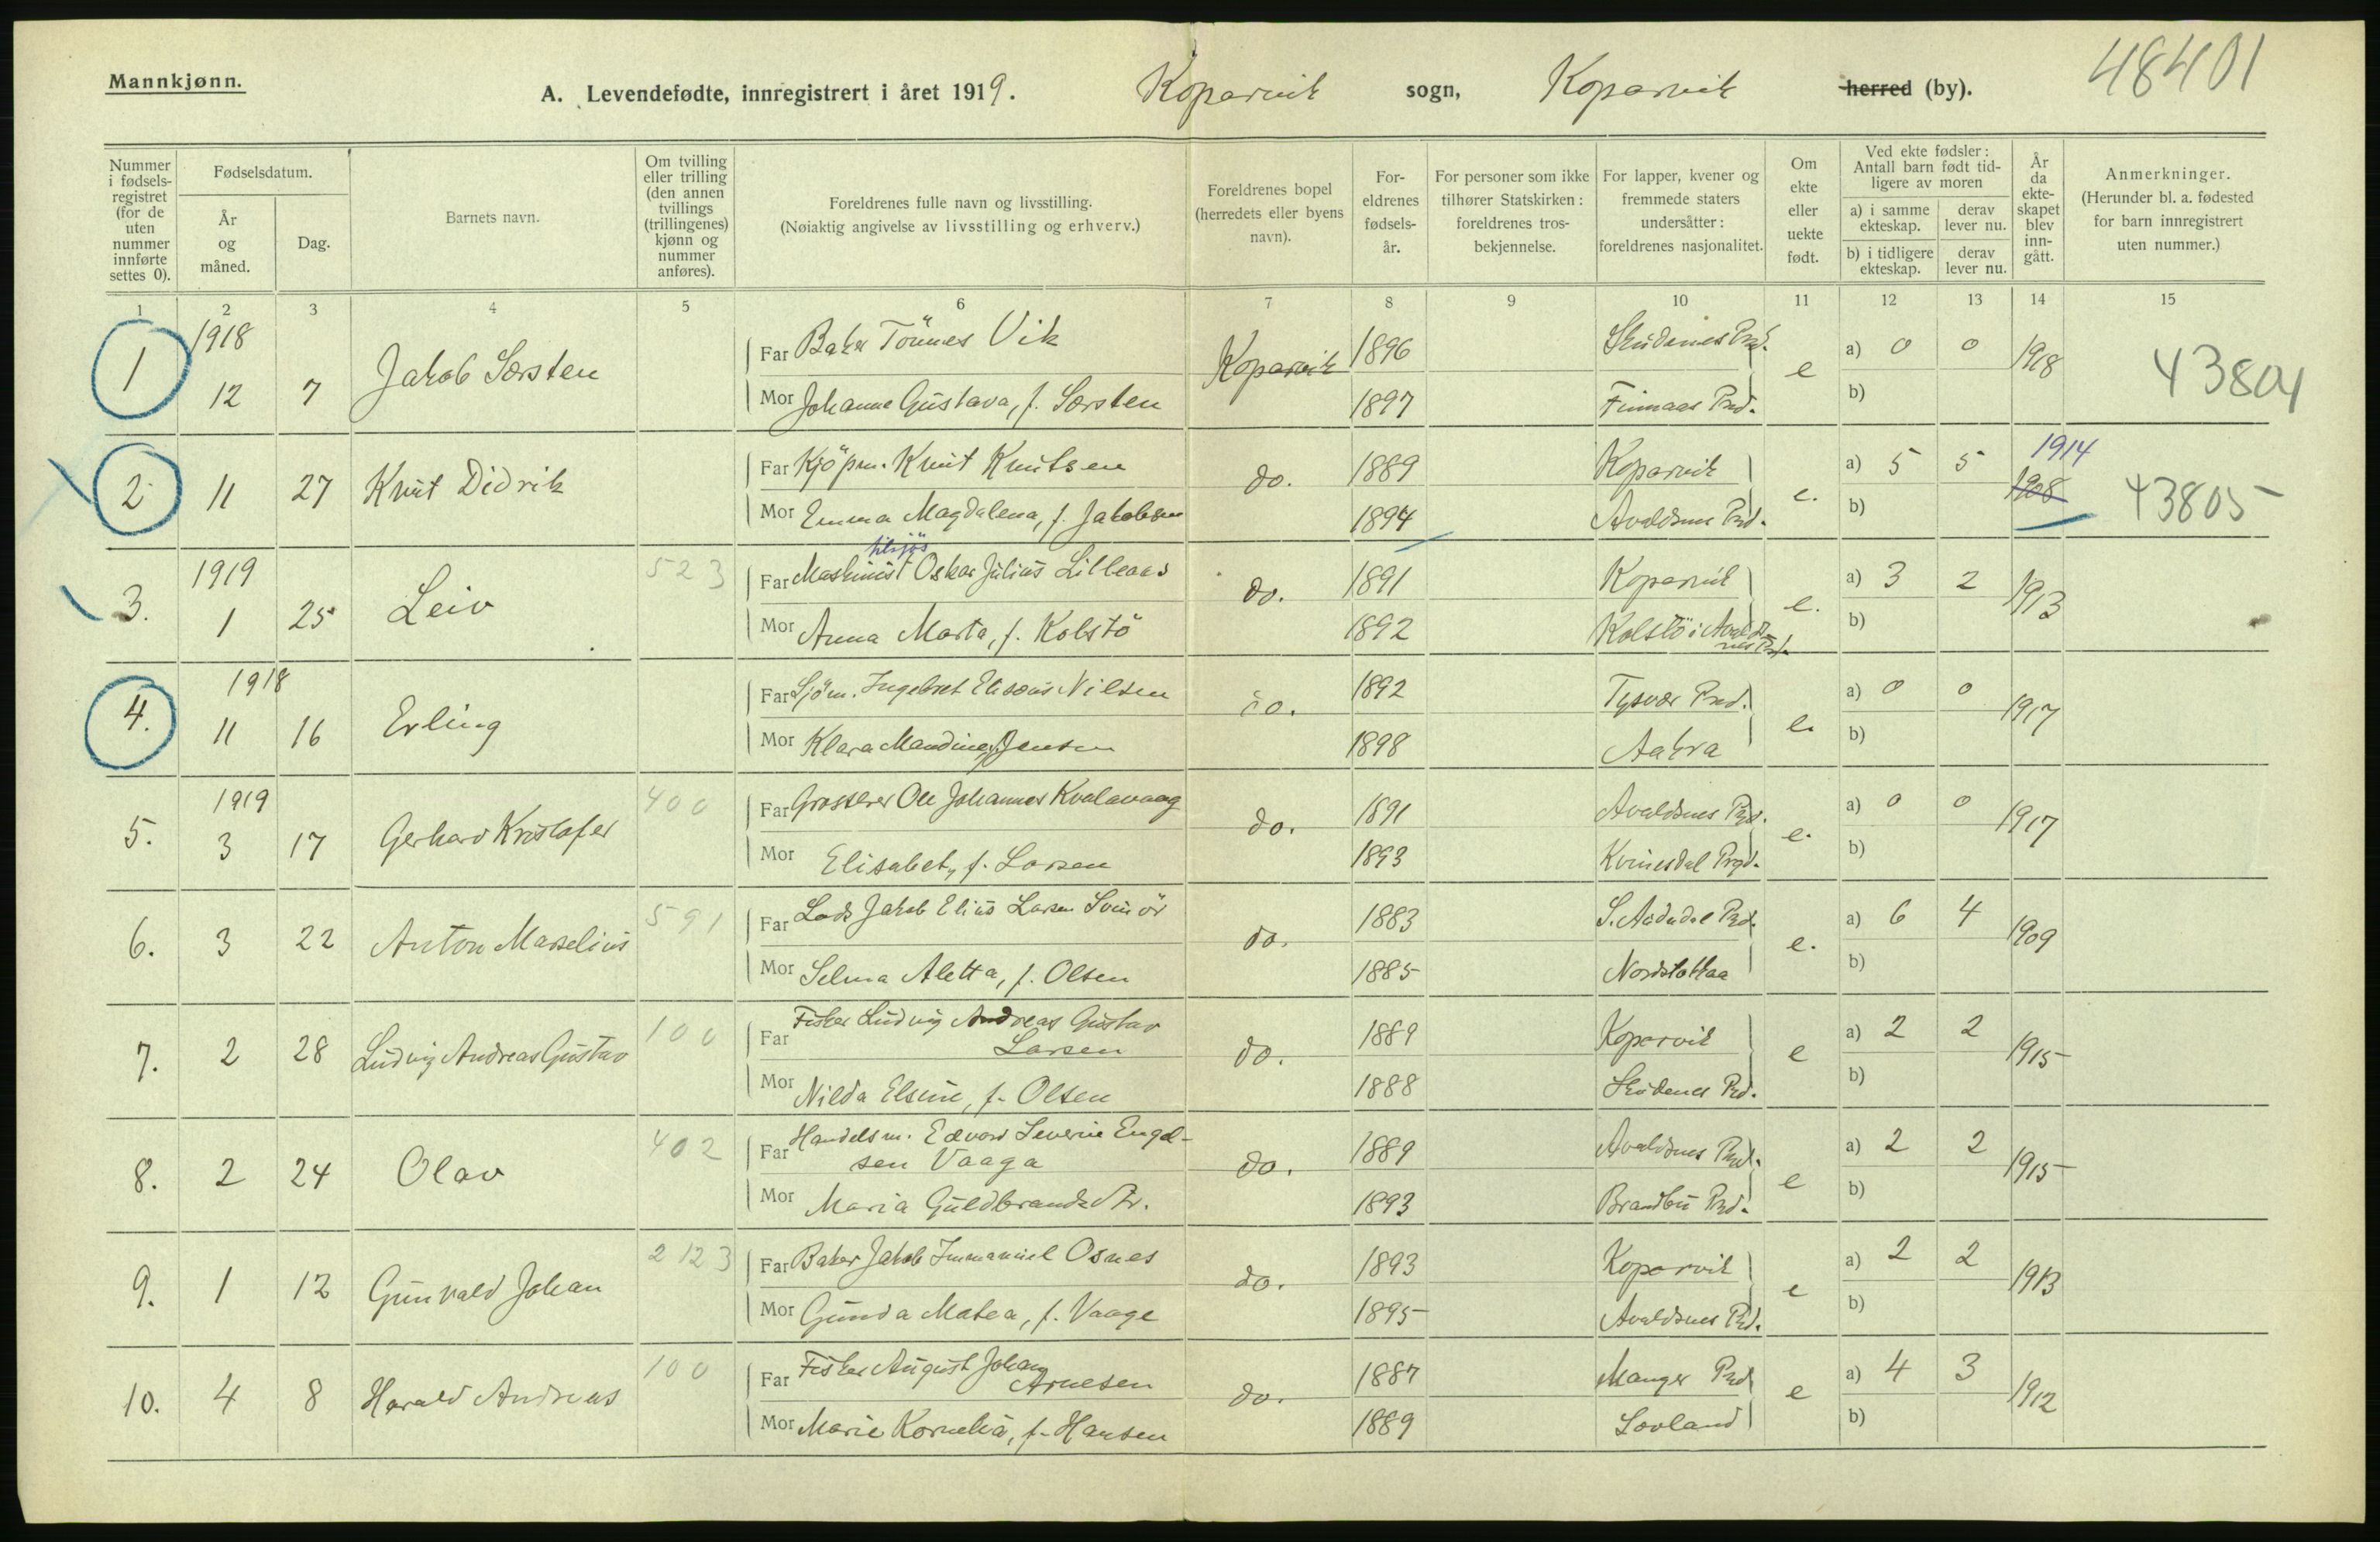 Mannkjønn.
A. Levendefødte, innregistrert i året 1919. Kopervik sogn, Kopervik herred (by). 48401
Nummer i fødsels-registret (for de uten nummer innførte settes 0).
Fødselsdatum.
År og måned.
Dag.
Barnets navn.
Om tvilling eller trilling (den annen tvillings (trillingenes) kjønn og nummer anføres).
Foreldrenes fulle navn og livsstilling.
(Nøiaktig angivelse av livsstilling og erhverv.)
Foreldrenes bopel (herredets eller byens navn).
For-eldrenes fødsels-år.
For personer som ikke tilhører Statskirken: foreldrenes tros-bekjennelse.
For lapper, kvener og fremmede staters undersåtter: foreldrenes nasjonalitet.
Om ekte eller uekte født.
Ved ekte fødsler: Antall barn født tid-ligere av moren
a) i samme ekteskap.
derav lever nu.
b) i tidligere ekteskap.
derav lever nu.
År da ekte-skapet blev inn-gått.
Anmerkninger.
(Herunder bl. a. fødested for barn innregistrert uten nummer.)
1 2 3 4 5 6 7 8 9 10 11 12 13 14 15
1918
1 12 7 Jakob Sørsten
Far Baker Tönnes Vik Kopervik 1896 Skudenes Prd. e a) 0 0 1918 43804
Mor Johanne Gustava, f. Sørsten 1897 Finnaas Prd. b)
2 11 27 Knut Didrik
Far Kjöpm. Knut Knutsen do. 1889 Kopervik e. a) 5 5 1914 1908 43805
Mor Emma Magdalena, f. Jakobsen 1894 Avaldsnes Prd. b)
1919
3. 1 25 Leiv 523
tilsjös
Far Maskinist Oskar Julius Lilleaas do. 1891 Kopervik e. a) 3 2 1913
Mor Anna Marta, f. Kolstö 1892 Kolstö i Avalds-nes Prd. b)
1918
4. 11 16 Erling
Far Sjöm. Ingebret Elisæus Nilsen do. 1892 Tysvær Prd. e. a) 0 0 1917
Mor Klara Mandine, f. Jensen 1898 Aakra b)
1919
5. 3 17 Gerhard Kristofer 400
Far Grosserer Ole Johannes Kvalavaag do. 1891 Avaldsnes Prd. e. a) 0 0 1917
Mor Elisabet, f. Larsen 1893 Kvinesdal Prgd. b)
6. 3 22 Anton Marselius 591
Far Lods Jakob Elius Larsen do. 1883 S. Audndal Prd. e. a) 6 4 1909
Mor Selma Aletta, f. Olsen 1885 b)
7. 2 28 Ludvig Andreas Gustav 100
Far Fisker Ludvig Andreas Gustav
Larsen do. 1889 Kopervik e a) 2 2 1915
Mor Nilda Elsine, f. Olsen 1888 Skudenes Prd. b)
8. 2 24 Olav 402
Far Handelsm. Edvard Severin Engel-
sen Vaaga do. 1889 Avaldsnes Prd. e a) 2 2 1915
Mor Maria Guldbrandsdtr. 1893 Brandbu Prd. b)
9. 1 12 Gunvald Johan 2123
Far Baker Jakob Immanuel Osnes do. 1893 Kopervik e a) 2 2 1913
Mor Gunda Matea, f. Vaage 1895 Avaldsnes Prd. b)
10. 4 8 Harald Andreas 100
Far Fisker August Johan
Arnesen do. 1887 Manger Prd e a) 4 3 1912
Mor Marie Kornelia, f. Hansen 1889 b)